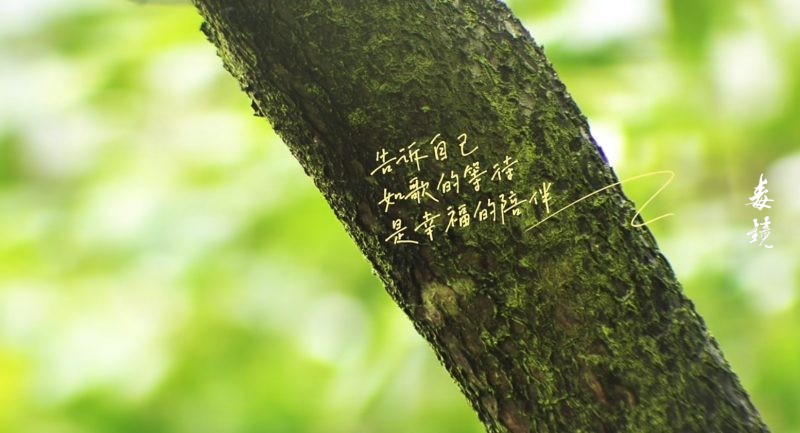 告诉自己
如歌的等待
是幸福的陪伴